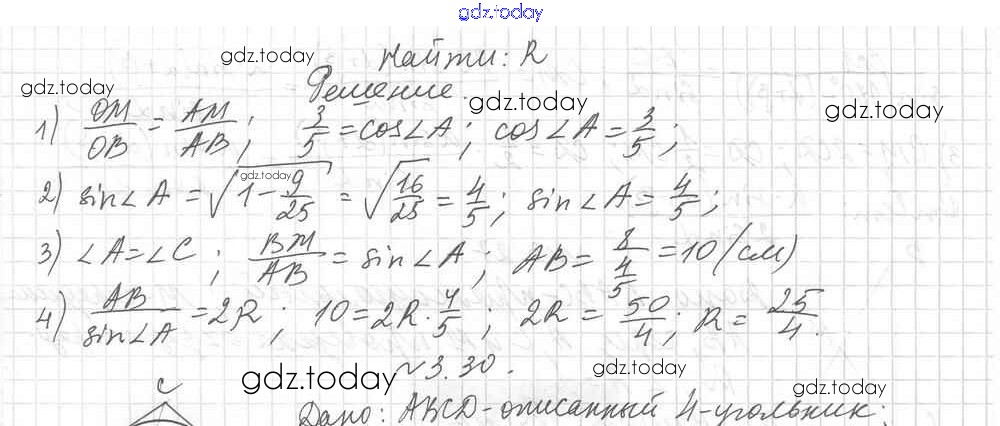 gdz.today
Найти: R
gdz.today
gdz.today
Решение.
gdz.today
gdz.today
1) OM/OB = AM/AB; 3/5 = cos∠A; cos∠A = 3/5;
gdz.today
2) sin∠A = √(1 - 9/25) = √(16/25) = 4/5; sin∠A = 4/5;
3) ∠A = ∠C; BM/AB = sin∠A; AB = 8/(4/5) = 10 (см)
4) AB/sin∠A = 2R; 10 = 2R · 4/5; 2R = 50/4; R = 25/4.
№3.30.
gdz.today
gdz.today
gdz.today
C
Дано: ABCD - описанный 4-угольник;